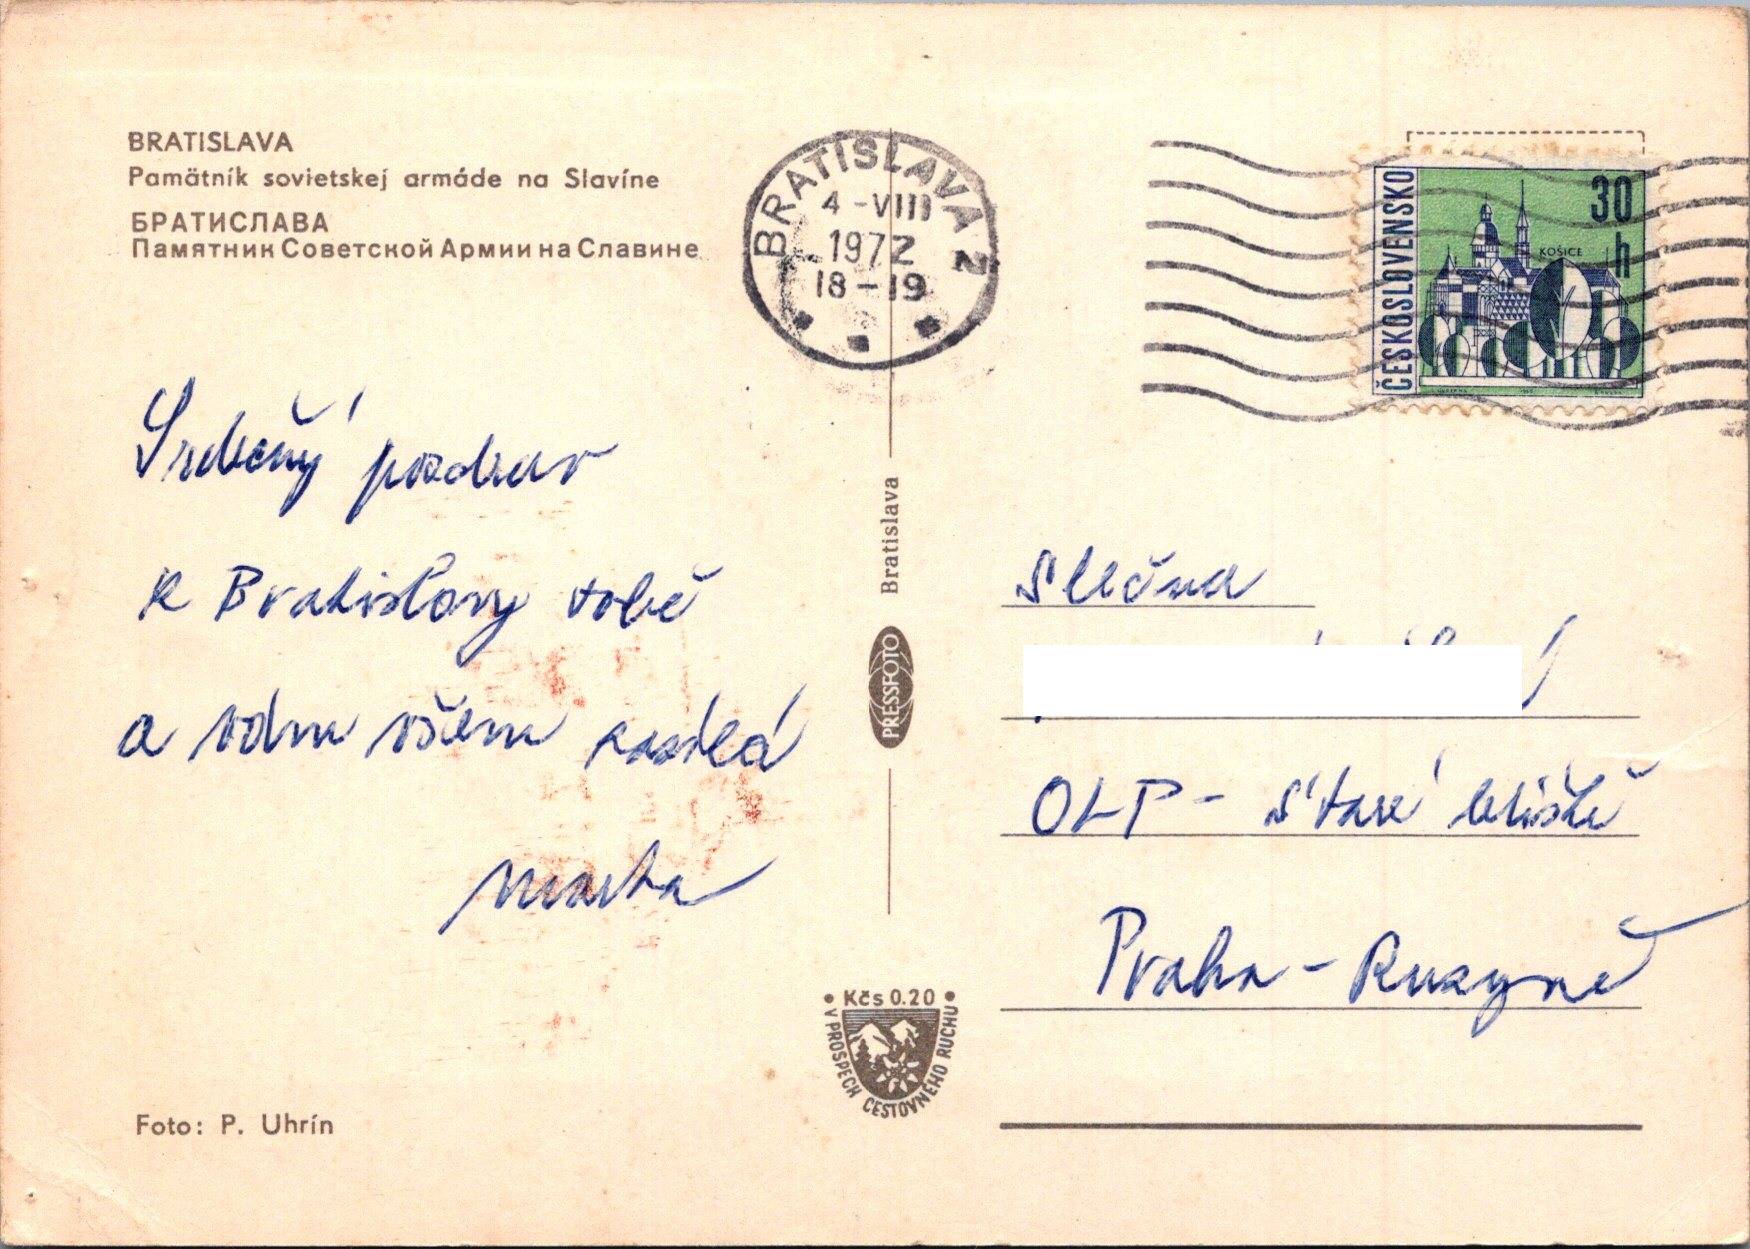 BRATISLAVA
Pamätník sovietskej armáde na Slavíne
БРАТИСЛАВА
Памятник Советской Армии на Славине
BRATISLAVA 2
4 -VIII
1972
18-19
ČESKOSLOVENSKO
30
h
KOŠICE
Srdečný pozdrav
z Bratislavy tobě
a vám všem zasílá
Marta
Bratislava
PRESSFOTO
Slečna
OLP - Staré letiště
Praha - Ruzyně
Kčs 0.20
V PROSPECH CESTOVNÉHO RUCHU
Foto: P. Uhrín